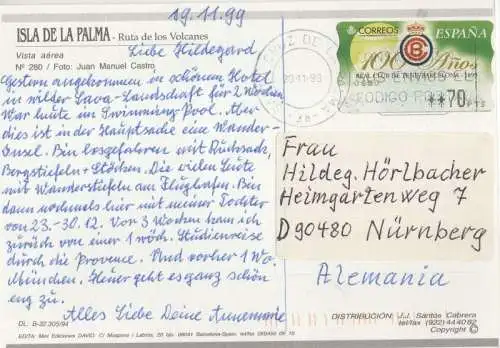 19.11.99
ISLA DE LA PALMA - Ruta de los Volcanes
Vista aérea
Nº 260 / Foto: Juan Manuel Castro
Liebe Hildegard
Gestern angekommen in schönem Hotel
in wilder Lava-Landschaft für 2 Wochen
War heute im Swimming-Pool. Aber
dies ist in der Hauptsache eine Wander-
Insel. Bin losgefahren mit Rucksack,
Bergstiefeln + Stöcken. Die vielen Leute
mit Wanderstiefeln am Flughafen. Bin
dann nochmals hier mit meiner Tochter
von 23.-30.12. Vor 3 Wochen kam ich
zurück von einer 1 wöch. Studienreise
durch die Provence. Und vorher 1 Wo.
München. Heuer geht es ganz schön
eng zu.
Alles Liebe Deine Annemarie
CORREOS
ESPAÑA
100 Años
REAL CLUB DE TENIS BARCELONA 1899
**70 PTS
CODIGO
20 11 99
Frau
Hildeg. Hörlbacher
Heimgartenweg 7
D 90480 Nürnberg
Alemania
DL: B-32.305/94
DISTRIBUCIÓN: J.J. Santos Cabrera
Copyright ©